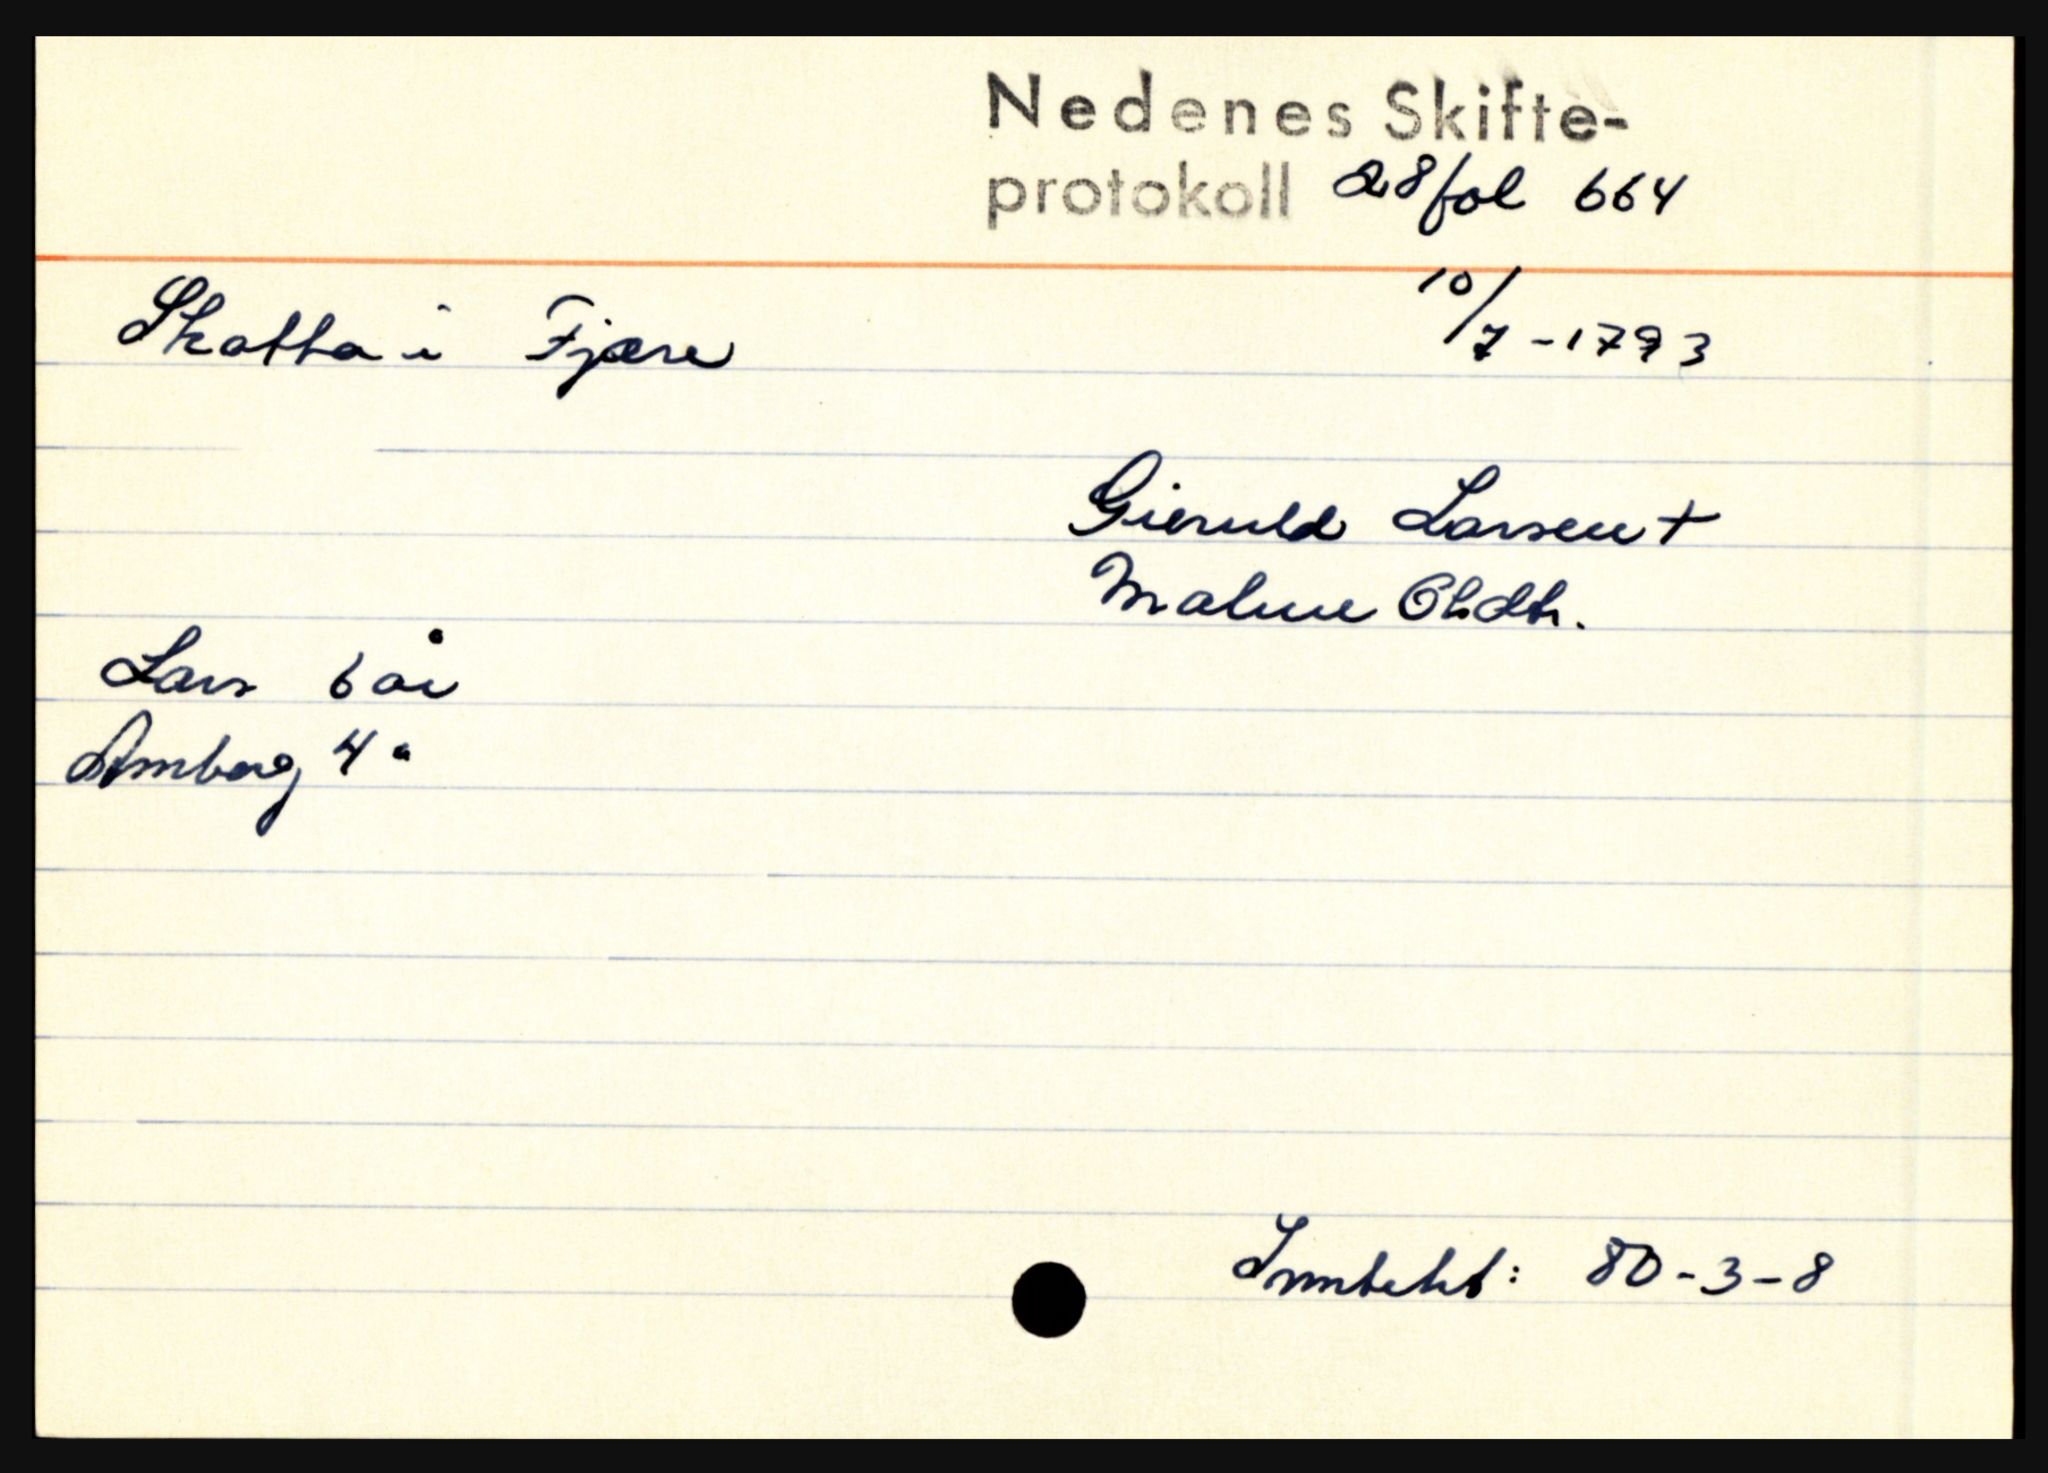 Nedenes Skifte-
protokoll 28 fol 664
Skatta i Fjære 10/7-1793
Gieruld Larsen +
Malene Olsdtr.
Lars 6 år
Amborg 4 "
Inntekt: 80-3-8